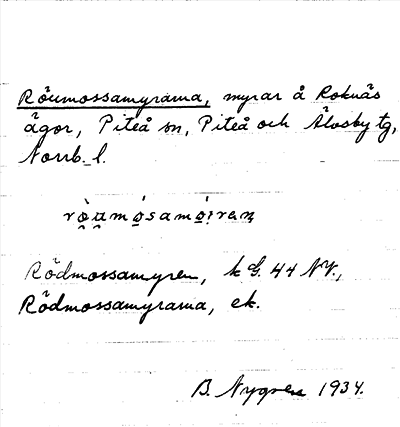 Röumossamyrarna, myrar å Roknäs
ägor, Piteå sn, Piteå och Älvsby tg,
Norrb. l.
Rödmossamyren, k bl. 44 NV.,
Rödmossamyrarna, ek.
B. Nygren 1934.